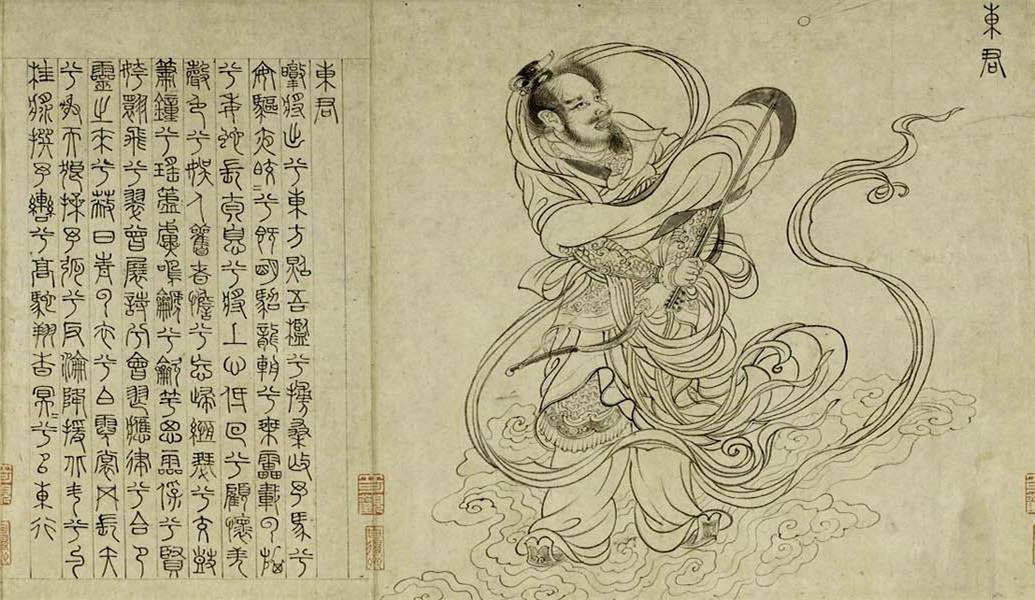 東君
東君
暾將出兮東方照吾檻兮扶桑撫予馬兮
安驅夜皎=兮既明駕龍輈兮乘雷載雲旗
兮委蛇長太息兮將上心低回兮顧懷羌
聲色兮娛人觀者憺兮忘歸緪瑟兮交鼓
簫鐘兮瑤簴鳴篪兮龡竽思靈保兮賢
姱翾飛兮翠曾展詩兮會舞應律兮合節
靈之來兮蔽日青雲衣兮白霓裳舉長矢
兮射天狼操予弧兮反淪降援北斗兮酌
桂漿撰予轡兮高駝翔杳冥=兮以東行